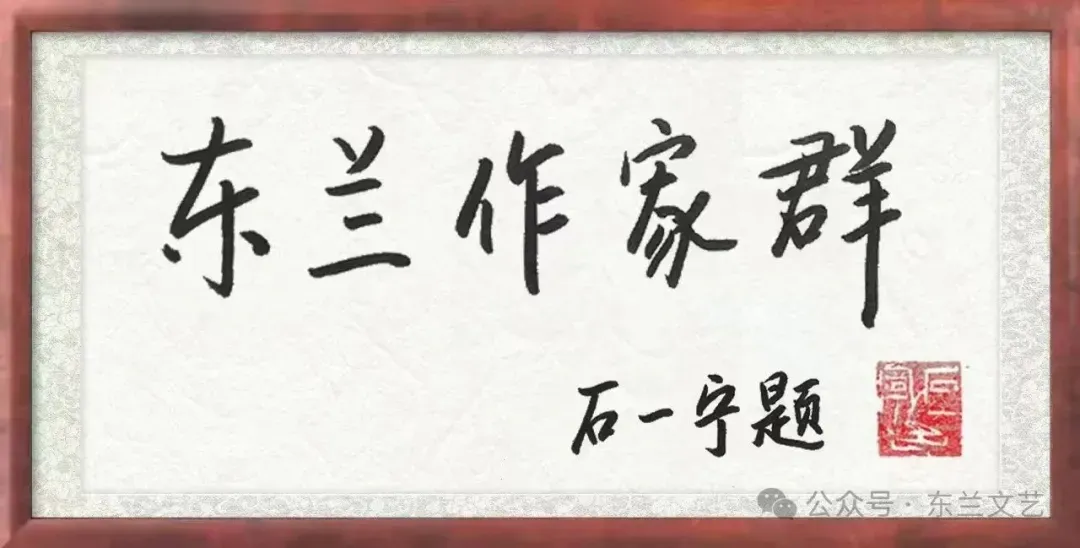 东兰作家群
石一宁题
公众号·东兰文艺